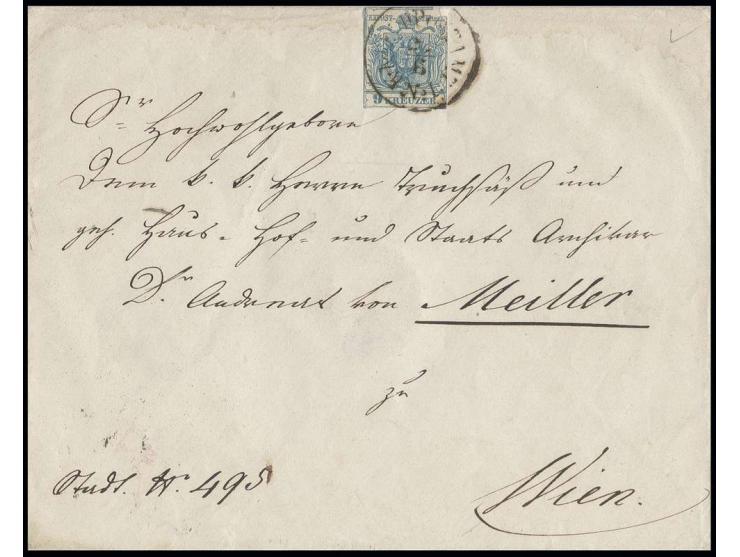 9 KREUZER
Sr Hochwohlgeborn
Dem k. k. Herrn Truchsäß und
geh. Haus- Hof- und Staats Archivar
Dr. Andreas von Meiller
zu
Wien.
Stadt. Nr. 495